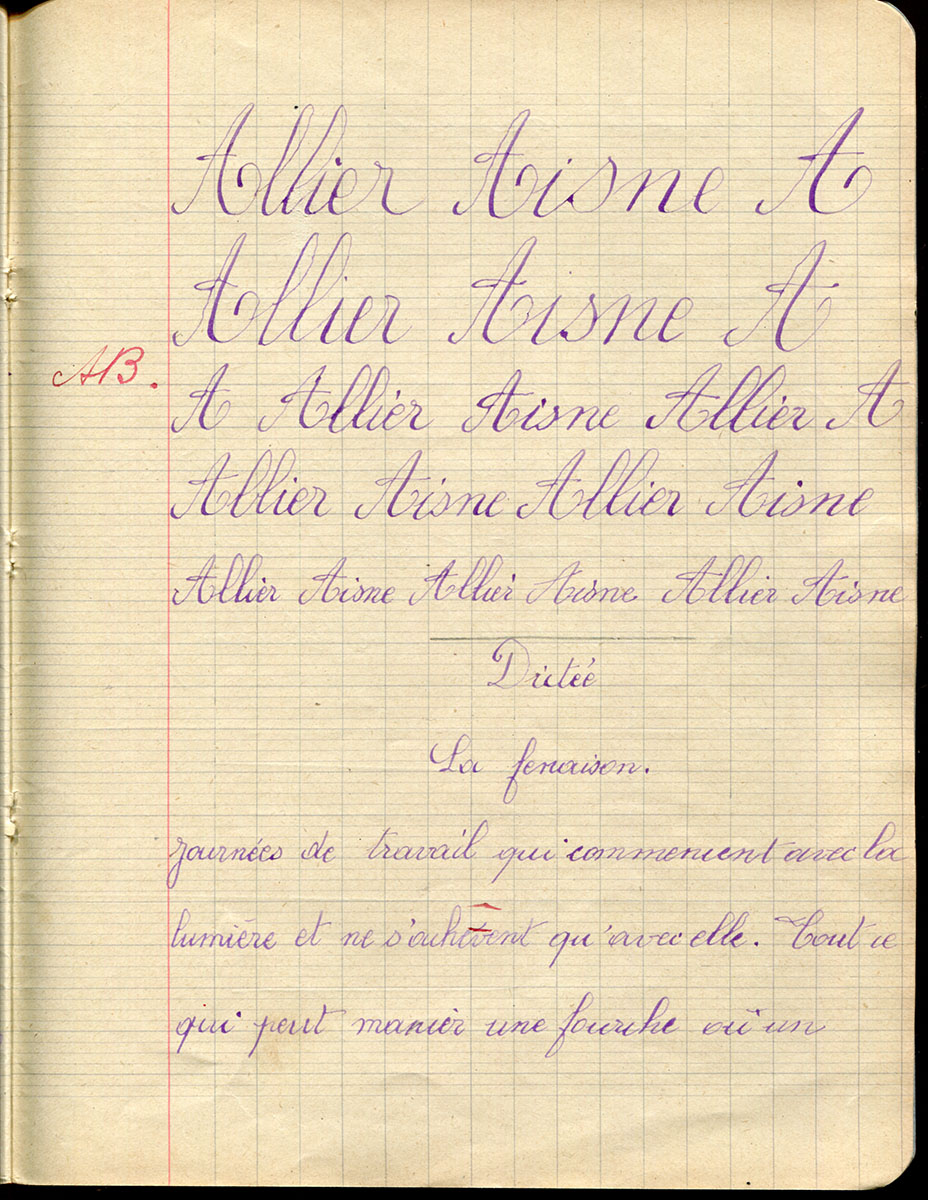 Allier Aisne A
Allier Aisne A
AB.
A Allier Aisne Allier A
Allier Aisne Allier Aisne
Allier Aisne Allier Aisne Allier Aisne
Dictée
La fenaison.
journées de travail qui commencent avec la
lumière et ne s'achèvent qu'avec elle. Tout ce
qui peut manier une fourche où un